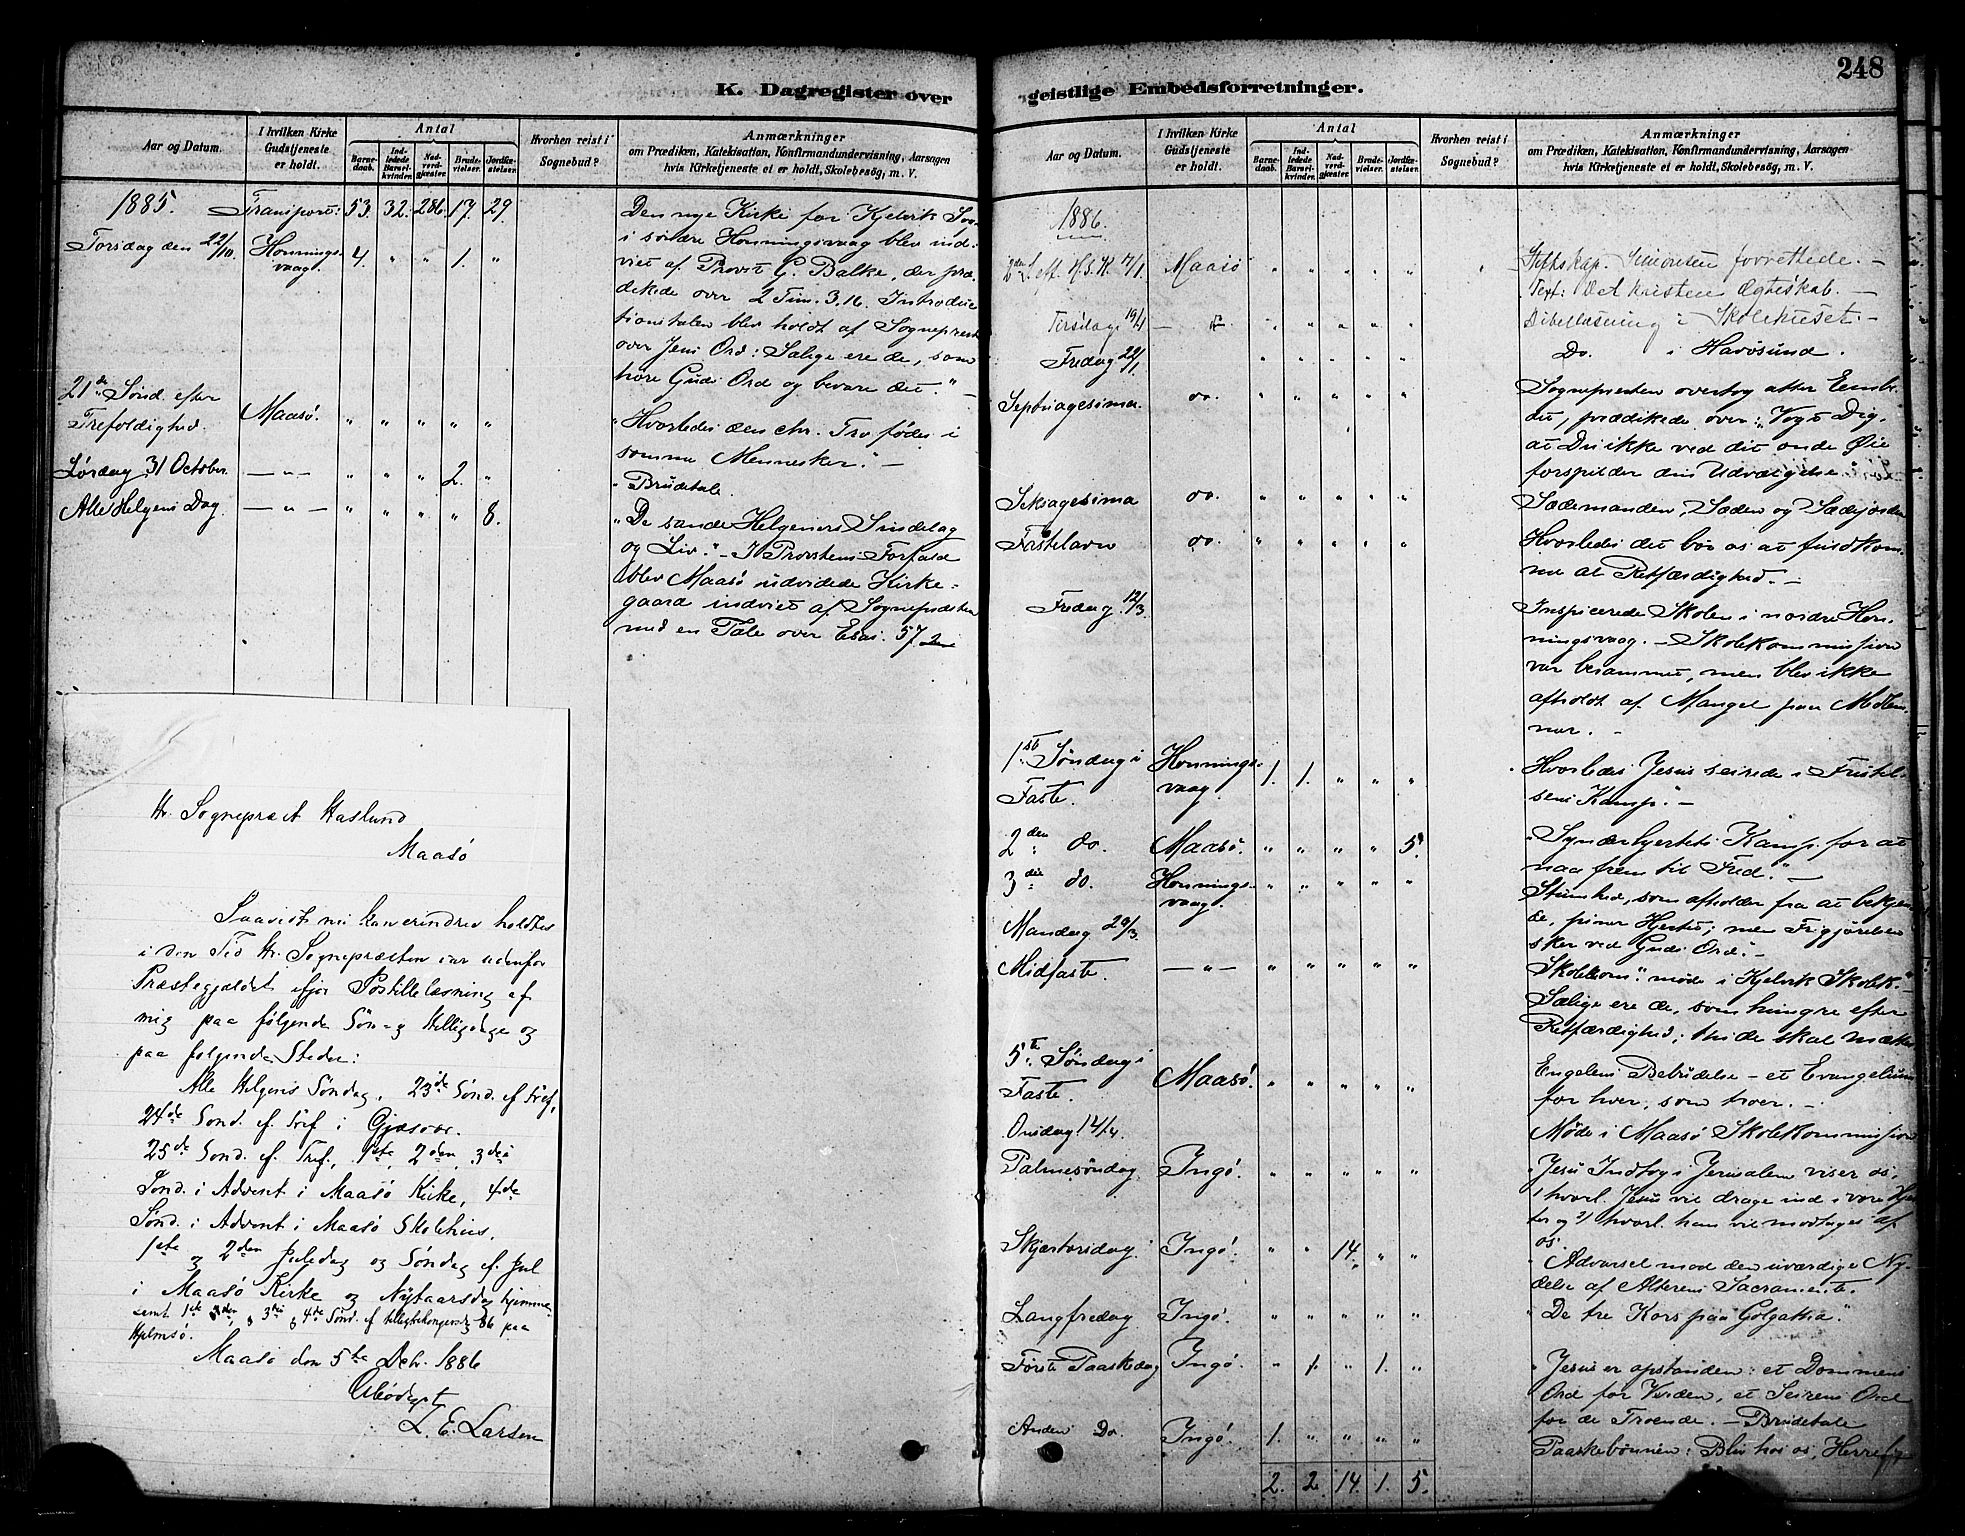 K. Dagregister over
Aar og Datum.
I hvilken Kirke Gudstjeneste er holdt.
Antal
Barnedaab.
Indledede Barselkvinder.
Nadverdgjester.
Brudevielser.
Jordfæstelser.
Hvorhen reist i Sognebud?
Anmærkninger
om Prædiken, Katekisation, Konfirmandundervisning, Aarsagen
hvis Kirketjeneste ei er holdt, Skolebesøg, m. V.
1885. Transport: 53. 32. 286. 17. 29.
Den nye Kirke for Kjelvik Sogn
Torsdag den 22/10. Honningsvaag. 4. " " 1. "
i søndre Honningsvaag blev indviet
af Provst G. Balke, der prædikede
over 2 Tim. 3.16. Introductionstalen
blev holdt af Sognepresten
over Jesu Ord: Salige ere de, som
høre Guds Ord og bevare det."
21de Sønd. efter Trefoldighed. Maasø. " " " " "
"Hvorledes den chr. Tro fødes i
somme Mennesker." –
Lørdag 31 October. — " — " " " 2. "
"Brudetale.
Alle Helgens Dag. — " — " " " " 8.
"De sande Helgeners Sindelag
og Liv." – I Provstens Forfald
blev Maasø udvidede Kirkegaard
indviet af Sognepresten
med en Tale over Esai. 57.2
Hr. Sogneprest Haslund
Maasø
Saavidt mei kan erindres holdtes
i den Tid Hr. Sognepræsten var udenfor
Præstegjældet Postillelæsning af
mig paa følgende Søn- og Helligdage og
paa følgende Steder:
Alle Helgens Søndag, 23de Sønd. ef Tref,
24de Sønd. ef. Tref i Gjæsvær.
25de Sønd. ef. Tref., 1ste, 2den, 3die
Sønd. i Advent i Maasø Kirke, 4de
Sønd. i Advent i Maasø Skolehus.
1ste og 2den Juledag og Søndag ef. Jul
i Maasø Kirke og Nytaarsdag hjemme
samt 1ste 2den, 3die 4de Sønd. ef 86 paa
Hjelmsø.
Maasø den 5te Debr. 1886
Ærbødigst
L. E. Larsen
geistlige Embedsforretninger.
248
Aar og Datum.
I hvilken Kirke Gudstjeneste er holdt.
Antal
Barnedaab.
Indledede Barselkvinder.
Nadverdgjester.
Brudevielser.
Jordfæstelser.
Hvorhen reist i Sognebud?
Anmærkninger
om Prædiken, Katekisation, Konfirmandundervisning, Aarsagen
hvis Kirketjeneste ei er holdt, Skolebesøg, m. V.
1886.
Maasø " " " " " "
Stiftskap. Simonsen forrettede. –
Text: Det kristen Ægteskab. –
Tirsdag 19/1 " " " " "
Bibellæsning i Skolehuset. –
Fredag 22/1 " " " " "
Do. i Havøsund.
Septuagesima. do. " " " " "
Sognepresten overtog atter Embedet,
prædikede over: "Vogt Dig,
at Du ikke ved det onde Øie
forspilder din Udvælgelse.
Seksagesima do. " " " " "
Sædemanden, Sæden og Sædejorden
Fastelavn do. " " " " "
Hvorledes det bør os at fuldkomme
al Retfærdighed. –
Fredag 12/3.
Inspicerede Skolen i nordre Honningsvaag.
– Skolekommission
var berammet, men blev ikke
afholdt af Mangel paa Medlemmer. –
1ste Søndag i Faste. Honningsvaag. 1. 1. " " "
Hvorledes Jesus seirede i Fristelsens
Kamp." –
2den do. Maasø. " " " " 5.
"Synderhjertets Kamp for at
naa frem til Fred." –
3die do. Honningsvaag. " " " " "
Stumhed, som afholder fra at bekjende,
piner Hjertet; men Frigjørelsen
sker ved Guds Ord." –
Mandag 29/3.
Skolekom. møde i Kjelvik Skolek. –
Midfaste. — " — " " " " "
Salige ere de, som hungre efter
Retfærdighed; thi de skal mættes
5te Søndag i Faste. Maasø. " " " " "
Engelens Bebudelse – et Evangelium
for hver, som troer. –
Onsdag 14/4.
Møde i Maasø Skolekommission
Palmesøndag Ingø. " " " " "
"Jesu Indtog i Jerusalem viser os,
1 hvorl. Jesus vil drage ind i vore Hjerter
og 2 hvorl. han vil modtages af
os.
Skjærtorsdag Ingø. " " 14. " "
"Advarsel mod den uværdige Nydelse
af Alterens Sacramente.
Langfredag Ingø. " " " " "
"De tre Kors paa Golgatha."
Første Paaskedag Ingø. " 1. " 1. "
"Jesus er opstanden: et Dommens
Ord for Verden, et Seirens Ord
for de Troende. – Brudetale
Anden Do. Ingø. 1. " " " "
Paaskebønnen: Bliv hos os, Herre
2. 2. 14. 1. 5.